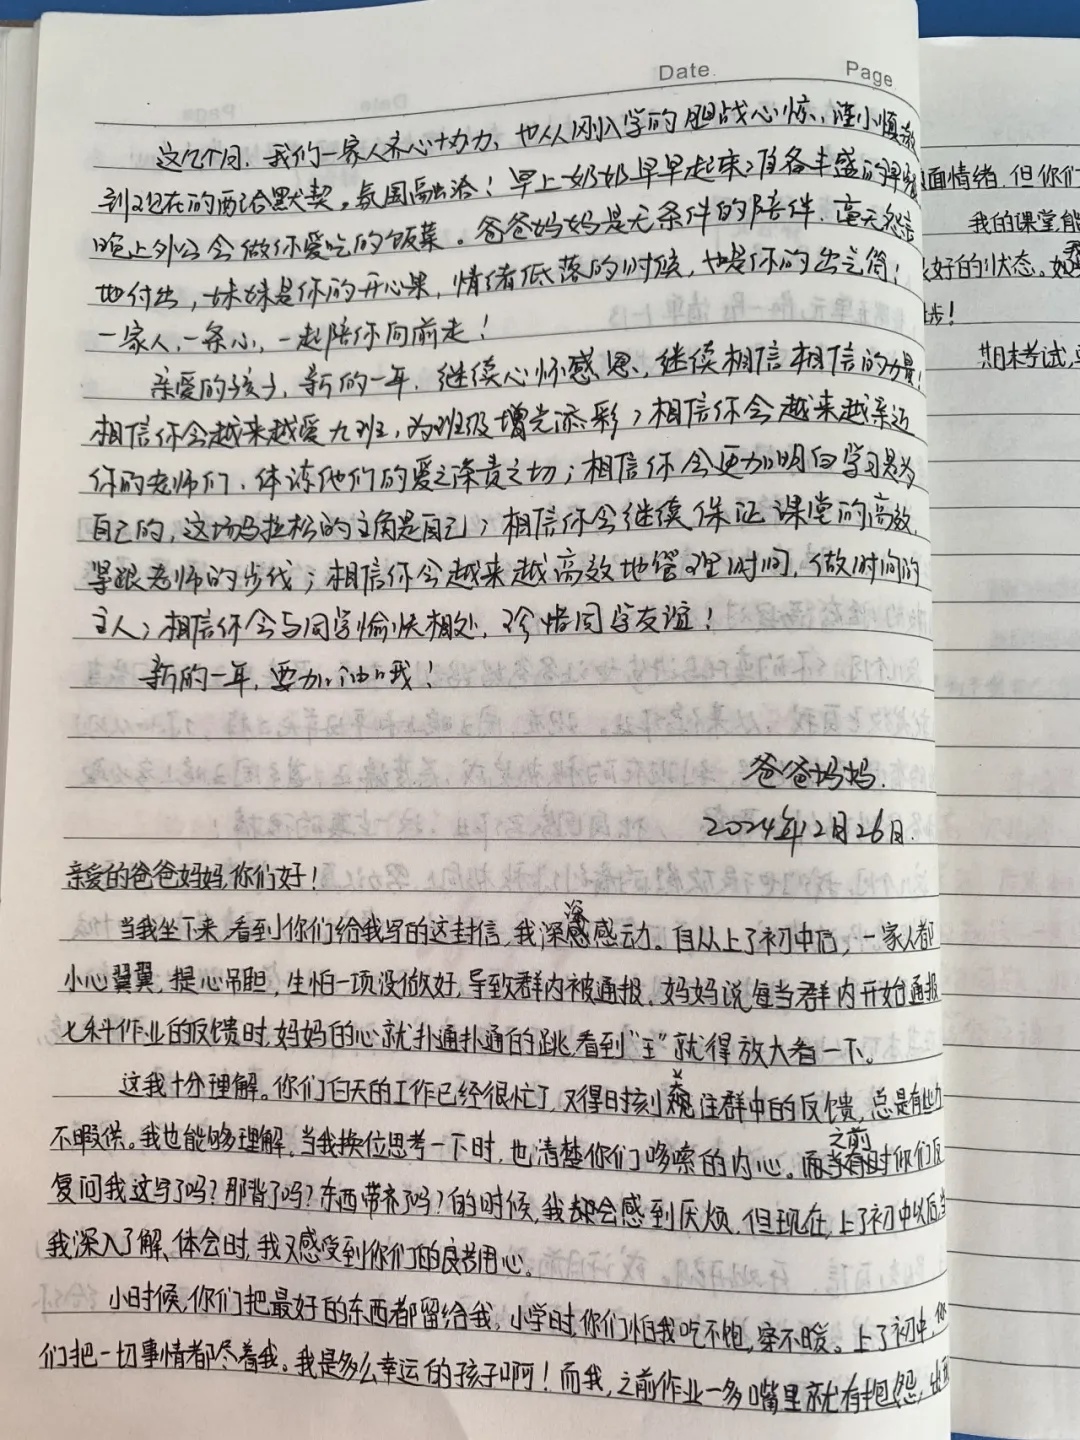 Date.
Page
这几个月,我们一家人齐心协力,也从刚入学的胆战心惊,谨小慎微
到现在的配合默契。氛围融洽!早上奶奶早早起来准备丰盛的早餐
晚上外公会做你爱吃的饭菜。爸爸妈妈是无条件的陪伴,毫无怨言
地付出,妹妹是你的开心果,情绪低落的时候,也是你的出气筒!
一家人,一条心,一起陪你向前走!
亲爱的孩子,新的一年,继续心怀感恩,继续相信相信的力量!
相信你会越来越爱九班,为班级增光添彩;相信你会越来越亲近
你的老师们,体谅他们的爱之深责之切;相信你会更加明白学习是为
自己的,这场马拉松的主角是自己;相信你会继续保证课堂的高效,
紧跟老师的步伐;相信你会越来越高效地管理时间,做时间的
主人;相信你会与同学愉快相处,珍惜同学友谊!
新的一年,要加油哦!
爸爸妈妈.
2024年12月26日.
亲爱的爸爸妈妈,你们好!
当我坐下来,看到你们给我写的这封信,我深深感动。自从上了初中后,一家人都
小心翼翼,提心吊胆,生怕一项没做好,导致群内被通报,妈妈说,每当群内开始通报
七科作业的反馈时,妈妈的心就扑通扑通的跳,看到“王”就得放大看一下。
这我十分理解。你们白天的工作已经很忙了,又得时刻关注群中的反馈,总是有些力
不暇供。我也能够理解,当我换位思考一下时,也清楚你们哆嗦的内心。而之前当有时你们反
复问我这写了吗?那背了吗?东西带齐了吗?的时候,我却会感到厌烦,但现在,上了初中以后,当
我深入了解、体会时,我又感受到你们的良苦用心。
小时候,你们把最好的东西都留给我,小学时,你们怕我吃不饱,穿不暖。上了初中,你
们把一切事情都尽着我。我是多么幸运的孩子啊!而我,之前作业一多嘴里就有抱怨,
面情绪,但你们
我的课堂,能
好的状态。如
步!
期末考试,